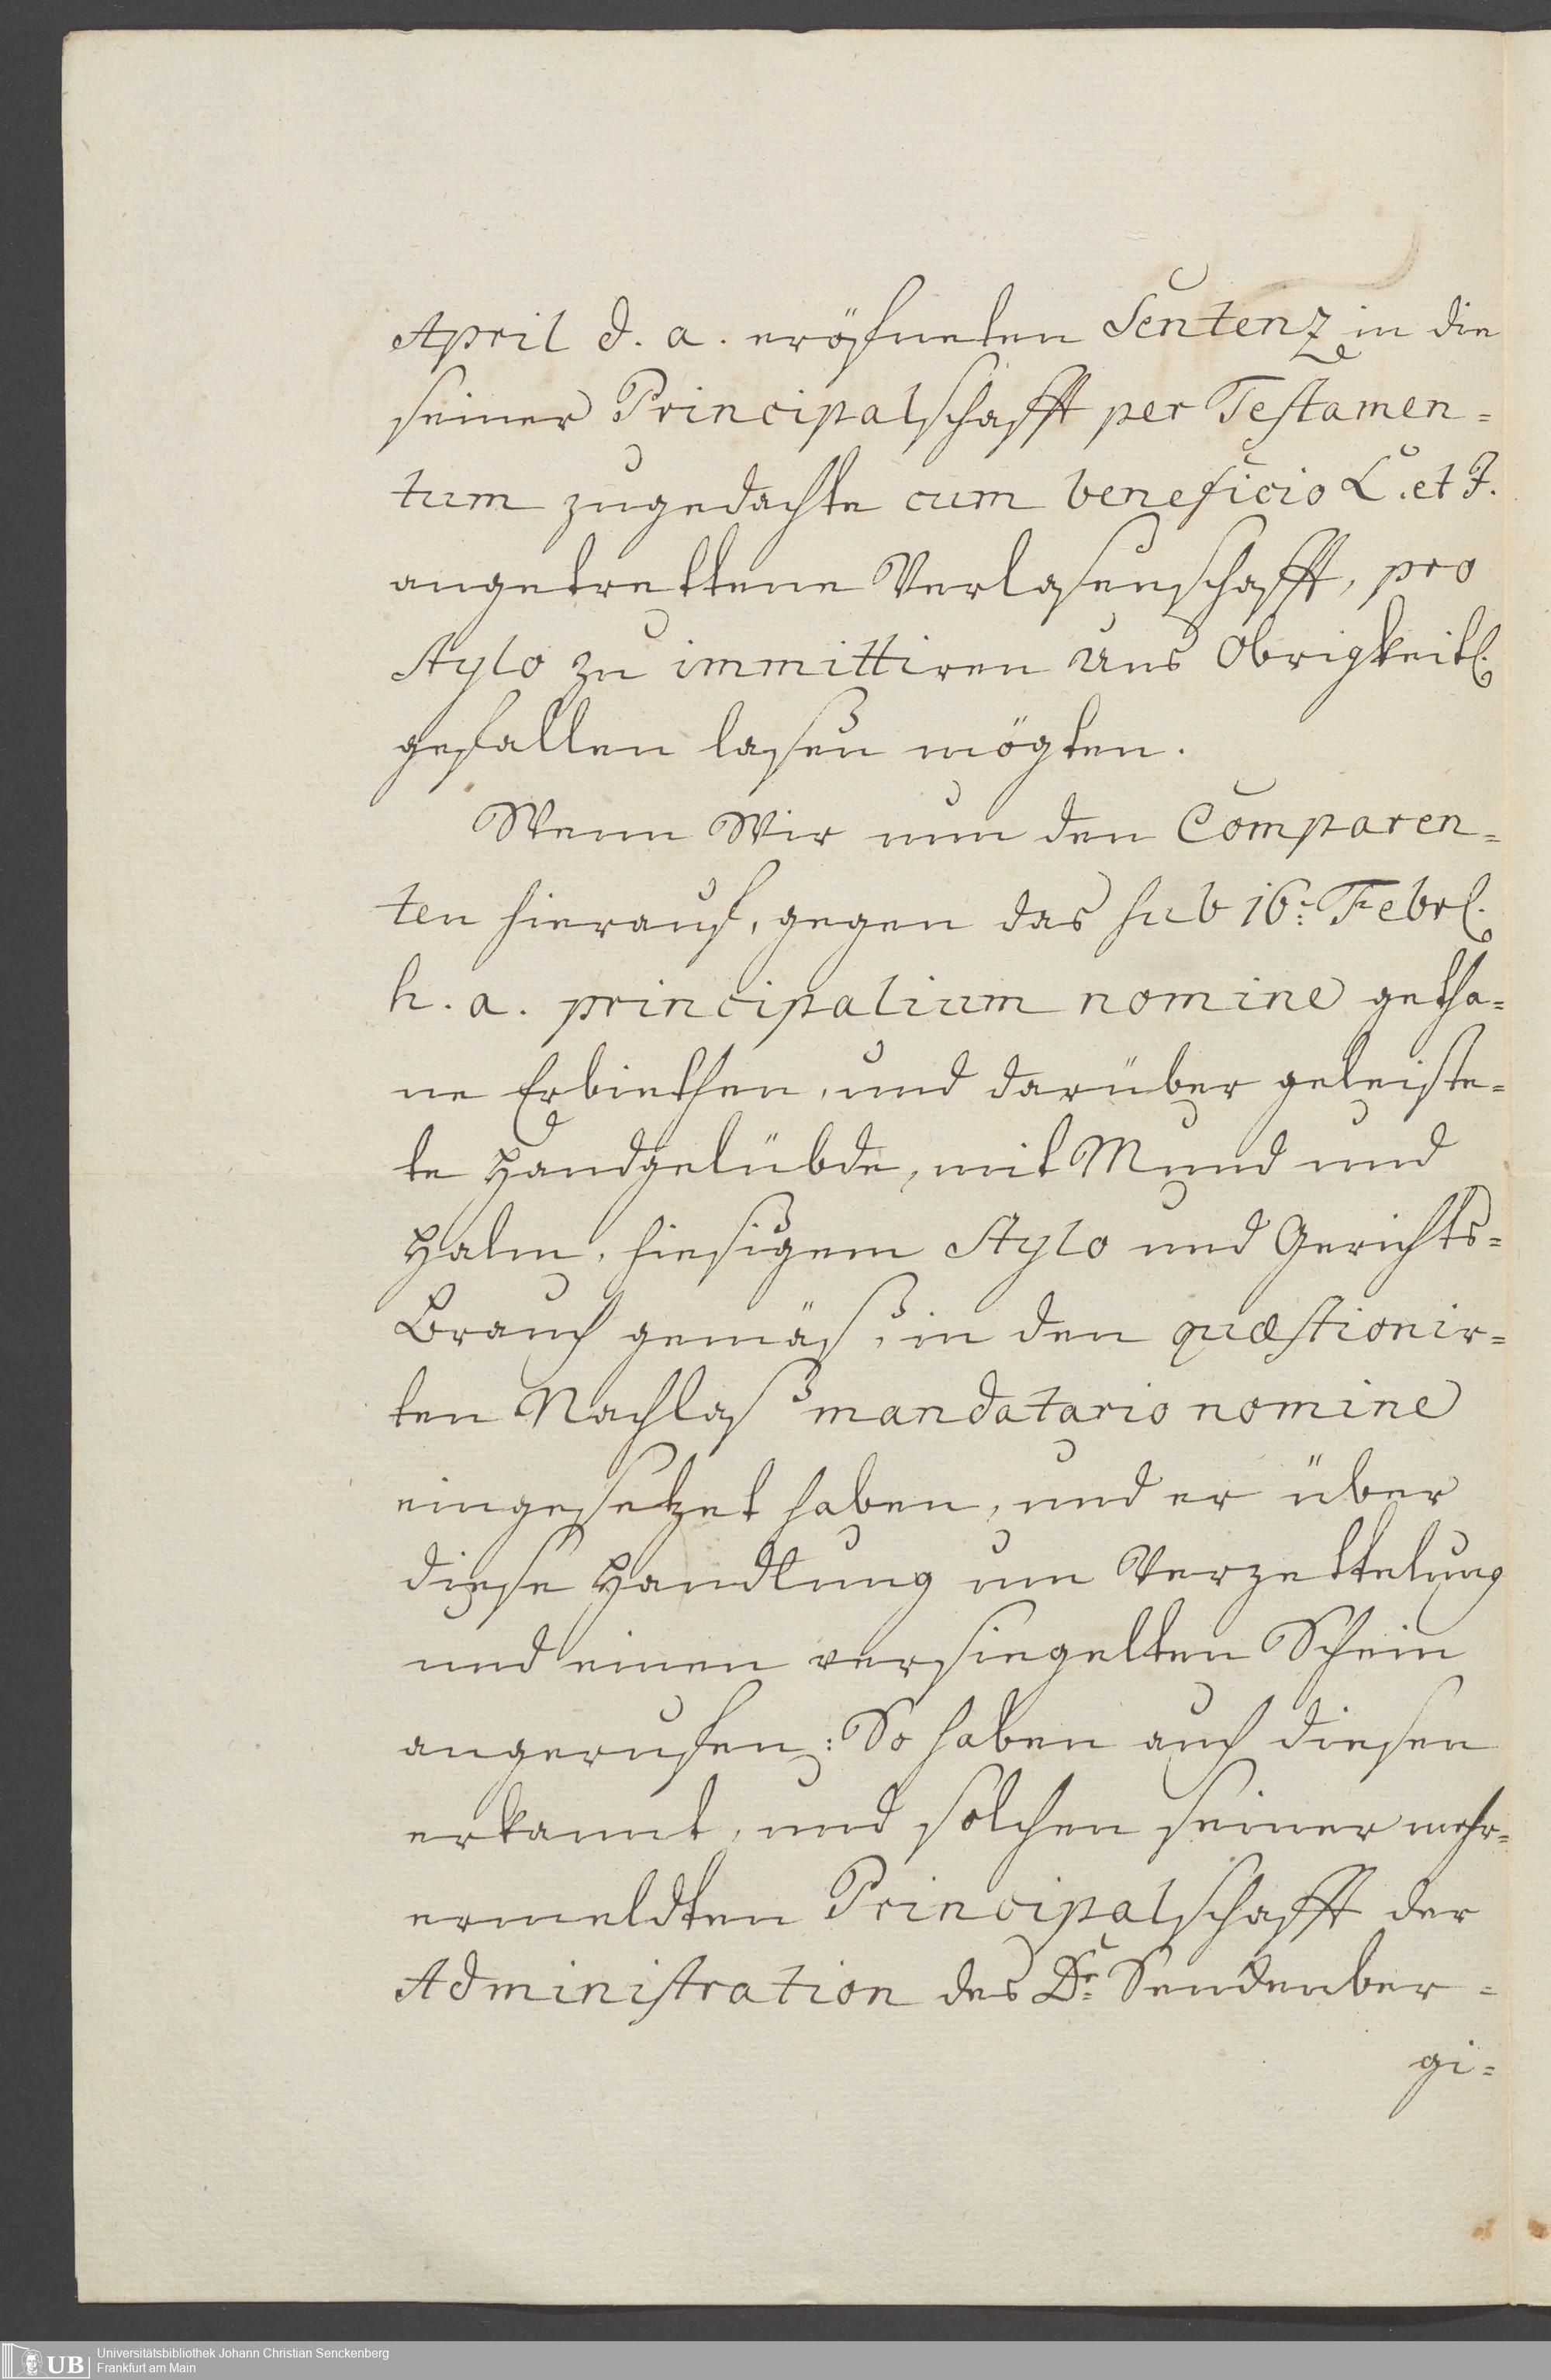 April d. a. eröfneten Sentenz in die
seiner Principalschafft per Testamen=
tum zugedachte cum beneficio L. et J.
angetrettene Verlasenschafft, pro
Stylo zu immittiren Uns Obrigkeitl.
gefallen lasen mögten.
Wenn Wir nun den Comparen=
ten hierauf, gegen das sub 16.ᵗ Febrl.
h. a. principalium nomine getha=
ne Erbiethen, und darüber geleiste=
te Handgelübde, mit Mund und
Halm, hiesigem Stylo und Gerichts=
Brauch gemäß, in den quæstionir=
ten Nachlaß mandatario nomine
eingesetzet haben, und er über
diese Handlung um Verzettelung
und einen versiegelten Schein
angerufen: So haben auch diesen
erkannt, und solchen seiner mehr=
ermeldten Principalschafft der
Administration des Dr. Senckenber=
gi=
UB Universitätsbibliothek Johann Christian Senckenberg
Frankfurt am Main